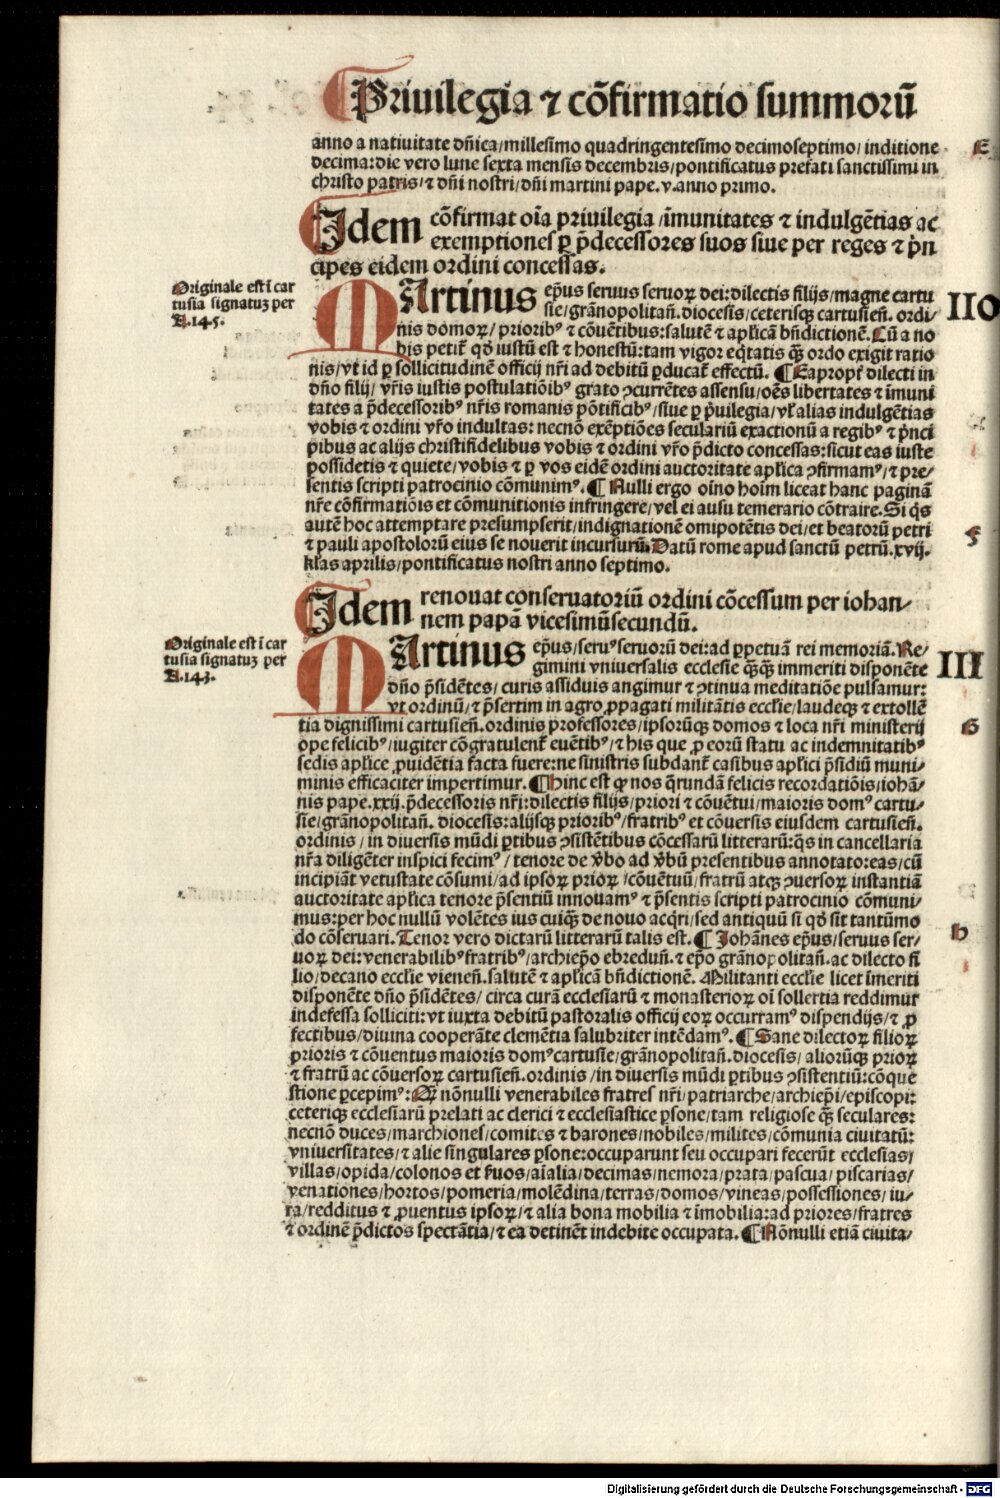 Priuilegia ⁊ cõfirmatio summorũ
anno a natiuitate dñica/millesimo quadringentesimo decimoseptimo/ inditione
decima:die vero lune sexta mensis decembris/pontificatus prefati sanctissimi in
christo patris/⁊ dñi nostri/dñi martini pape.v.anno primo.
E
Idem cõfirmat oĩa priuilegia/ĩmunitates ⁊ indulgẽtias ac
exemptiones ꝑ p̃decessores suos siue per reges ⁊ p̃n
cipes eidem ordini concessas.
Originale est ĩ car
tusia signatuʒ per
A.145.
MArtinus ep̃us seruus seruoꝝ dei:dilectis filijs/magne cartu
sie/grãnopolitañ.diocesis/ceterisqꝫ cartusieñ.ordi/
nis domoꝝ/prioribꝰ ⁊ cõuẽtibus:salutẽ ⁊ ap̃licã bñdictionẽ.Cũ a no
bis petit᷑ qđ iustũ est ⁊ honestũ:tam vigor eq̃tatis q̃ꝫ ordo exigit ratio
nis/vt id ꝑ sollicitudinẽ officij nr̃i ad debitũ ꝑducat᷑ effectũ. ¶Eapropt᷑ dilecti in
dño filij/ vr̃is iustis postulatiõibꝰ grato ꝯcurrẽtes assensu/oẽs libertates ⁊ ĩmuni
tates a p̃decessoribꝰ nr̃is romanis põtificibꝰ/siue ꝑ p̃uilegia/vl᷑ alias indulgẽtias
vobis ⁊ ordini vr̃o indultas:necnõ exẽptiões seculariũ exactionũ a regibꝰ ⁊ p̃nci
pibus ac alijs christifidelibus vobis ⁊ ordini vr̃o p̃dicto concessas:sicut eas iuste
possidetis ⁊ quiete/vobis ⁊ ꝑ vos eidẽ ordini auctoritate ap̃lica ꝯfirmamꝰ/⁊ pre/
sentis scripti patrocinio cõmunimꝰ.¶Nulli ergo oĩno hoĩm liceat hanc paginã
nr̃e cõfirmatiõis et cõmunitionis infringere/vel ei ausu temerario cõtraire.Si q̃s
autẽ hoc attemptare presumpserit/indignationẽ omĩpotẽtis dei/et beatorũ petri
⁊ pauli apostolorũ eius se nouerit incursurũ.Datũ rome apud sanctũ petrũ.xvij.
kĺas aprilis/pontificatus nostri anno septimo.
IIO
F
Idem renouat conseruatoriũ ordini cõcessum per iohan/
nem papã vicesimũsecundũ.
Originale est ĩ car
tusia signatuʒ per
A.143.
MArtinus ep̃us/seruꝰseruorũ dei:ad ꝑpetuã rei memoriã.Re/
gimini vniuersalis ecclesie q̃ꝫq̃ꝫ immeriti disponẽte
dño p̃sidẽtes/ curis assiduis angimur ⁊ ꝯtinua meditatiõe pulsamur:
vt ordinũ/⁊ p̃sertim in agro ꝓpagati militãtis eccl̃ie/laudeqꝫ ⁊ extollẽ
tia dignissimi cartusieñ.ordinis professores/ipsorũqꝫ domos ⁊ loca nr̃i ministerij
ope felicibꝰ/iugiter cõgratulent᷑ euẽtibꝰ/⁊ his que ꝓ eorũ statu ac indemnitatibꝰ
sedis ap̃lice ꝓuidẽtia facta fuere:ne sinistris subdant᷑ casibus ap̃lici p̃sidiũ muni/
minis efficaciter impertimur.¶Hinc est ꝙ nos q̃rundã felicis recordatiõis/iohã/
nis pape.xxij.p̃decessoris nr̃i:dilectis filijs/priori ⁊ cõuẽtui/maioris domꝰ cartu/
sie/grãnopolitañ. diocesis:alijsqꝫ prioribꝰ/fratribꝰ et cõuersis eiusdem cartusieñ.
ordinis/in diuersis mũdi ꝑtibus ꝯsistẽtibus cõcessarũ litterarũ:q̃s in cancellaria
nr̃a diligẽter inspici fecimꝰ/ tenore de v̾bo ad v̾bũ presentibus annotato:eas/cũ
incipiãt vetustate cõsumi/ad ipsoꝝ prioꝝ/cõuẽtuũ/fratrũ atqꝫ ꝯuersoꝝ instantiã
auctoritate ap̃lica tenore p̃sentiũ innouamꝰ ⁊ p̃sentis scripti patrocinio cõmuni/
mus:per hoc nullũ volẽtes ius cuiq̃ꝫ de nouo acq̃ri/sed antiquũ si qđ sit tantũmo
do cõseruari.Tenor vero dictarũ litterarũ talis est.¶Johãnes ep̃us/seruus ser/
uoꝝ dei:venerabilibꝰfratribꝰ/archiep̃o ebreduñ.⁊ ep̃o grãnopolitañ.ac dilecto fi
lio/decano eccl̃ie vieneñ.salutẽ ⁊ ap̃licã bñdictionẽ. Militanti eccl̃ie licet ĩmeriti
disponẽte dño p̃sidẽtes/ circa curã ecclesiarũ ⁊ monasterioꝝ oĩ sollertia reddimur
indefessa solliciti:vt iuxta debitũ pastoralis officij eoꝝ occurramꝰ dispendijs/⁊ ꝓ
fectibus/diuina cooperãte clemẽtia salubriter intẽdamꝰ.¶Sane dilectoꝝ filioꝝ
prioris ⁊ cõuentus maioris domꝰcartusie/grãnopolitañ.diocesis/ aliorũqꝫ prioꝝ
⁊ fratrũ ac cõuersoꝝ cartusieñ.ordinis/in diuersis mũdi ꝑtibus ꝯsistentiũ:cõque
stione ꝑcepimꝰ:Ꝙ nõnulli venerabiles fratres nr̃i/patriarche/archiep̃i/episcopi:
ceteriqꝫ ecclesiarũ prelati ac clerici ⁊ ecclesiastice ꝑsone/tam religiose q̃ꝫ seculares:
necnõ duces/marchiones/comites ⁊ barones/nobiles/milites/cõmunia ciuitatũ:
vniuersitates/⁊ alie singulares ꝑsone:occuparunt seu occupari fecerũt ecclesias/
villas/opida/colonos et ẜuos/aĩalia/decimas/nemora/prata/pascua/piscarias/
venationes/hortos/pomeria/molẽdina/terras/domos/vineas/possessiones/iu/
ra/redditus ⁊ ꝓuentus ipsoꝝ/⁊ alia bona mobilia ⁊ ĩmobilia:ad priores/fratres
⁊ ordinẽ p̃dictos spectãtia/⁊ ea detinẽt indebite occupata.¶Nõnulli etiã ciuita/
III
G
h
Digitalisierung gefördert durch die Deutsche Forschungsgemeinschaft - DFG